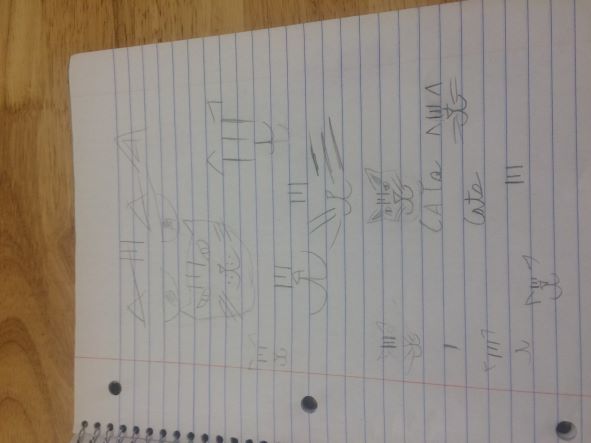 CATs
Cats